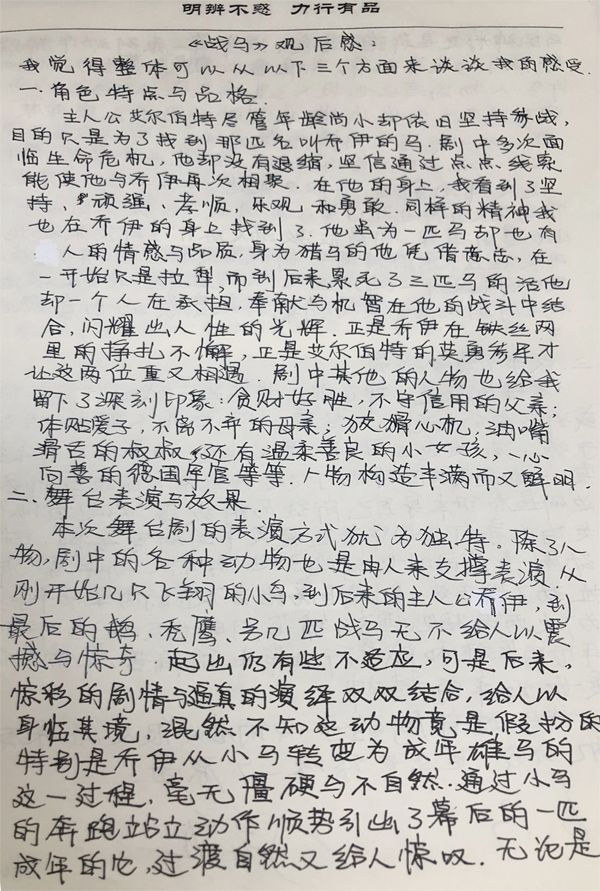 明辨不惑 力行有品
《战马》观后感：
我觉得整体可以从以下三个方面来谈谈我的感受
一.角色特点与品格.
主人公艾尔伯特尽管年龄尚小却依旧坚持参战，
目的只是为了找到那匹名叫乔伊的马.剧中多次面
临生命危机，他却没有退缩，坚信通过点点线索
能使他与乔伊再次相聚.在他的身上，我看到了坚
持、顽强、孝顺，乐观和勇敢.同样的精神我
也在乔伊的身上找到了.他虽为一匹马却也有
人的情感与品质，身为猎马的他凭借意志，在
一开始只是拉犁，而到后来累死了三匹马的活他
却一个人在承担，奉献与机智在他的战斗中结
合，闪耀出人性的光辉.正是乔伊在铁丝网
里的挣扎不懈，正是艾尔伯特的英勇参军才
让这两位重又相遇.剧中其他的人物也给我
留下了深刻印象：贪财好胜，不守信用的父亲；
体贴爱子，不离不弃的母亲；狡猾心机，油嘴
滑舌的叔叔，还有温柔善良的小女孩，一心
向善的德国军官等等.人物构造丰满而又鲜明.
二.舞台表演与效果.
本次舞台剧的表演方式尤为独特。除了人
物，剧中的各种动物也是由人来支撑表演.从
刚开始几只飞翔的小鸟，到后来的主人公乔伊，到
最后的鹅、秃鹰、另几匹战马无不给人以震
撼与惊奇.起出仍有些不适应，可是后来，
惊彩的剧情与逼真的演绎双双结合，给人以
身临其境，混然不知这动物竟是假扮的
特别是乔伊从小马转变为成年雄马的
这一过程，毫无僵硬与不自然.通过小马
的奔跑站立动作顺势引出了幕后的一匹
成年的它，过渡自然又给人惊叹.无论是